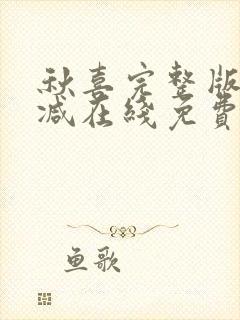 秋喜完整版
减在线免費
鱼歌